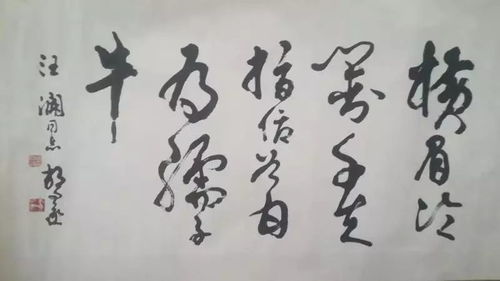 横眉冷
對千夫
指俯首甘
为孺子
牛
汪澜同志